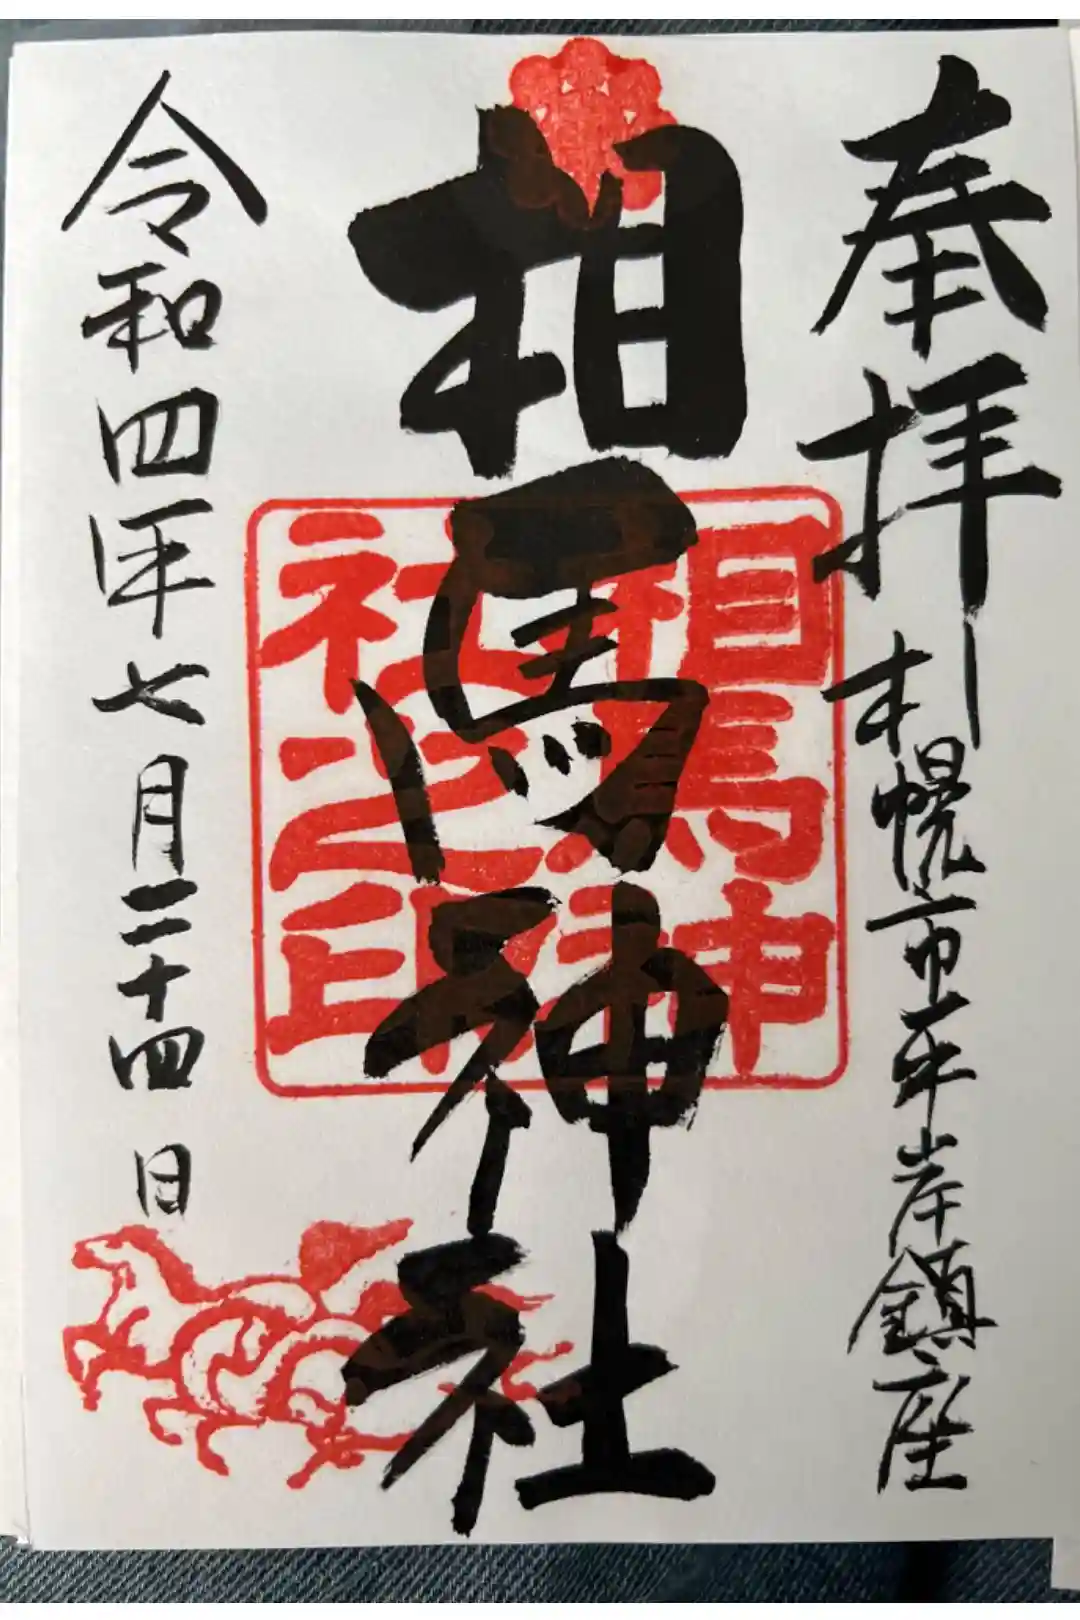 奉拝
札幌市平岸鎮座
相馬神社
相馬神
社之印
令和四年七月二十四日